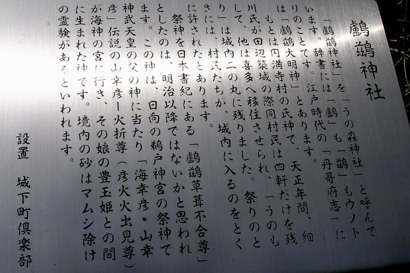 鸕鶿神社
「鸕鶿神社」を「うの森神社」と呼んで
います。辞書には「鸕」も「鶿」もウノト
リのことです。江戸時代の「丹哥府志」に
は「鸕鶿大明神」とあります。
もとは円満寺村の氏神で、天正年間、細
川氏が田辺築城の際同村民は四軒だけを残
して、他は喜多へ移住させられ、「うのも
り」は城内二の丸に残りました。祭りのと
きには、村民たちが、城内に入るのをとく
に許されたとあります。
祭神を日本書紀にある「鸕鶿草葺不合尊」
としたのは、明治以降ではないかと思われ
ます。この神は、日向の鵜戸神宮の祭神で
神武天皇の父の神に当たり、「海幸彦・山幸
彦」伝説の山幸彦＝火折尊（彦火火出見尊）
が海神の宮へ行き、その娘の豊玉姫との間
に生まれた神です。境内の砂はマムシ除け
の霊験があるといわれます。
設置 城下町倶楽部